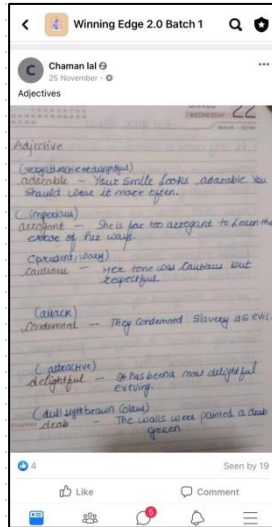 Winning Edge 2.0 Batch 1
Chaman lal
25 November
Adjectives
WEDNESDAY 22
Adjective
adorable — Your smile looks adorable. You
should wear it more often.
(imperious)
arrogant — She is far too arrogant to learn the
of her ways.
(prudent, wary)
cautious — Her tone was Cautious but
respectful.
(attack)
Condemned — They Condemned Slavery as evil.
(attractive)
delightful — It has been a most delightful
evening.
(dull light brown Colour)
drab — The walls were painted a drab
green
4
Seen by 19
Like
Comment
5